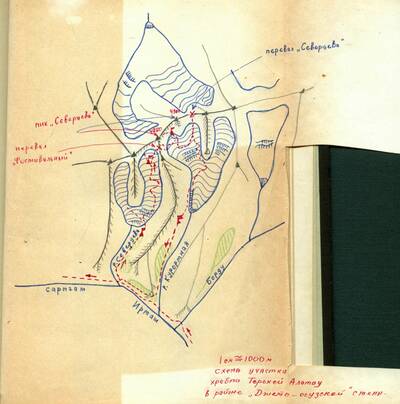 перевал „Северцева"
пик „Северцева"
перевал
„Фестивальный"
р. Северцева
р. Курортная
Борду
сарытам
Иртыш
1 см ≈ 1000 м
схема участка
хребта Терскей Алатау
в районе „Джеты-огузской" стены.